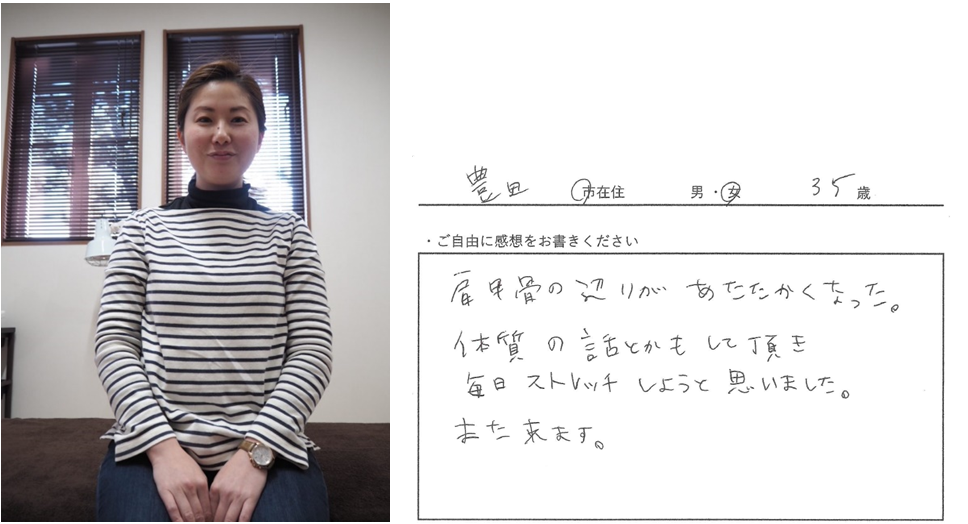 豊田 市在住 男・女 35歳
・ご自由に感想をお書きください
肩甲骨の辺りが あたたかくなった。
体質の話とかもして頂き
毎日ストレッチしようと思いました。
また来ます。